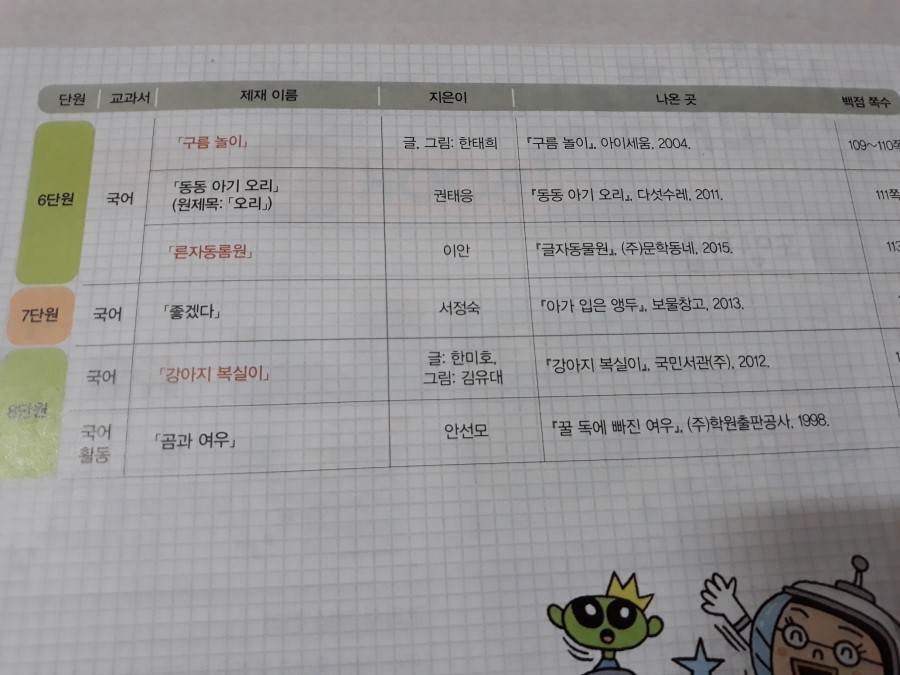 단원 교과서 제재 이름 지은이 나온 곳 백점 쪽수
6단원 국어 「구름 놀이」 글, 그림: 한태희 『구름 놀이』, 아이세움, 2004. 109~110쪽
「동동 아기 오리」
(원제목: 「오리」) 권태응 『동동 아기 오리』, 다섯수레, 2011. 111쪽
「른자동롬원」 이안 『글자동물원』, (주)문학동네, 2015. 113
7단원 국어 「좋겠다」 서정숙 『아가 입은 앵두』, 보물창고, 2013.
8단원 국어 「강아지 복실이」 글: 한미호,
그림: 김유대 『강아지 복실이』, 국민서관(주), 2012.
국어
활동 「곰과 여우」 안선모 『꿀 독에 빠진 여우』, (주)학원출판공사, 1998.